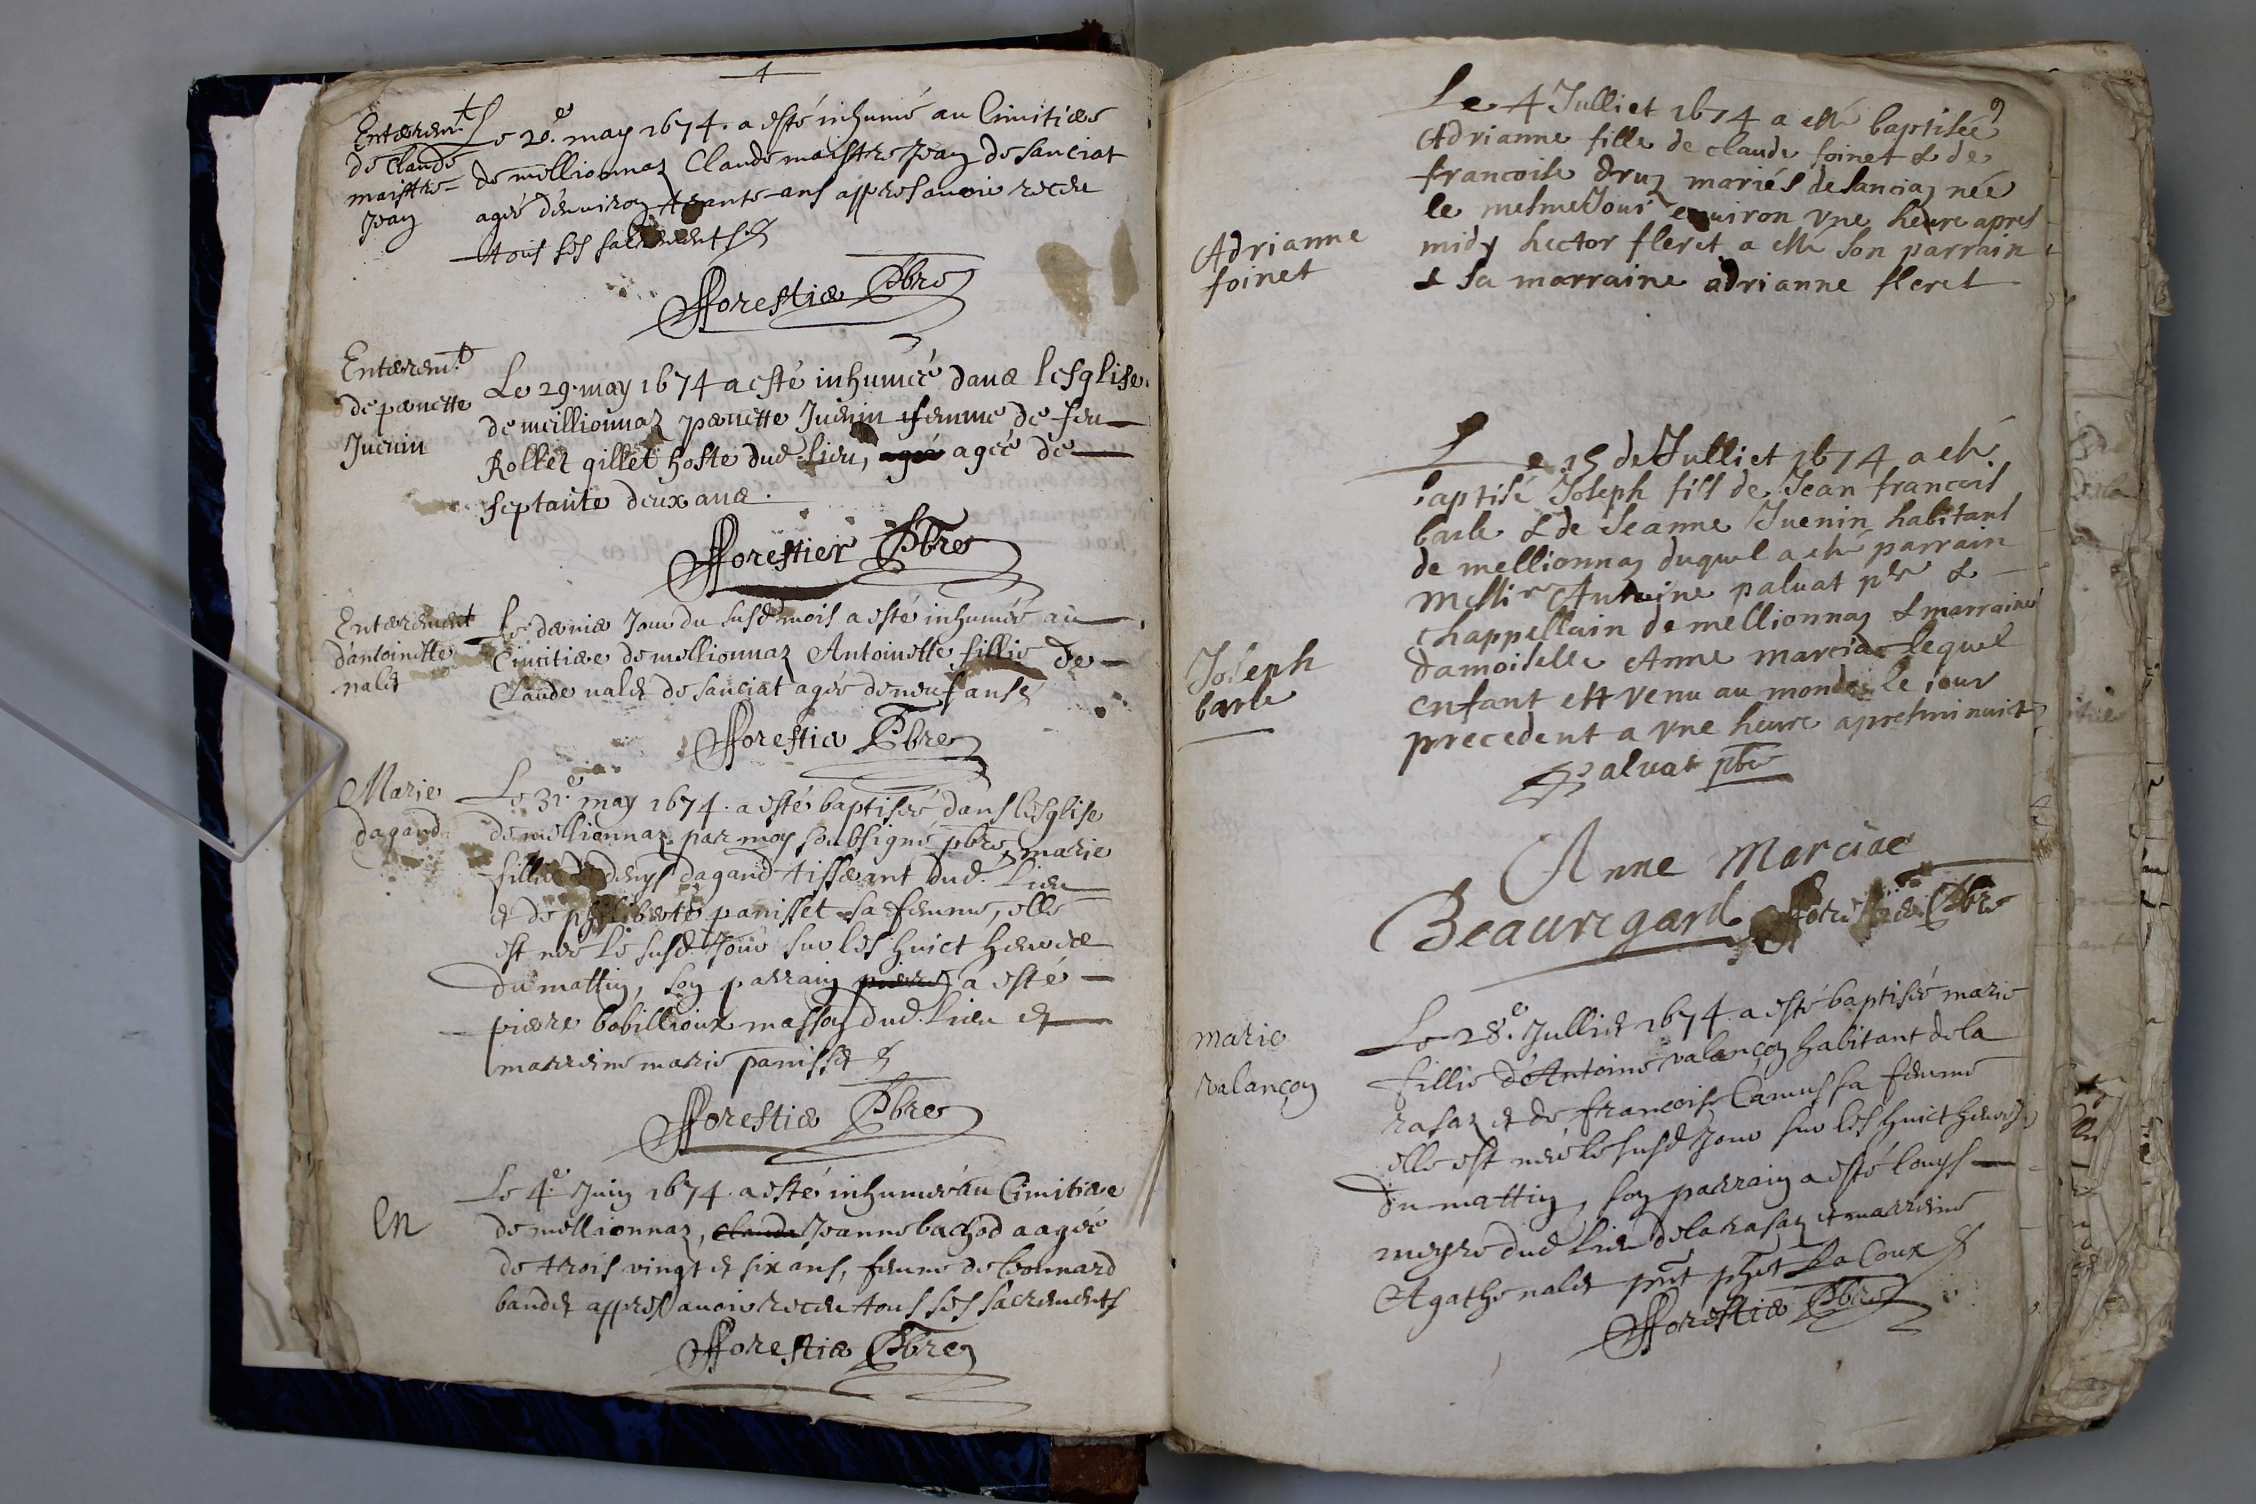 Enterem.t
de Claude
maistre=
Jean
Le 20.e may 1674. a esté inhumé au Cimitiere
de mellionnaz Claude maistre Jean de Sanciat
agé d'environ trante ans appres avoir receu
tous ses sacrements
fforestier Pbre
Enterem.t
de pernette
Juenin
Le 29. may 1674 a esté inhumée dans lesglise
de meillionnaz pernette Juenin femme de feu
Rollet gillet hoste dud. lieu, agée agée de
septante deux ans.
fforestier Pbre
Enterement
d'antoinette
nalet
Le dernier Jour du susd mois a esté inhumée au
Cimitiere de mellionnaz Antoinette fillie de
Claude nalet de Sanciat agée de neuf ans
fforestier Pbre
Marie
dagand
Le 31.e may 1674. a esté baptisée dans lesglise
de mellionnaz par moy soubsigné pbre, marie
fillie de denys dagand tisserant dud. lieu
et de philiberte panisset sa femme, elle
est née le susd. Jour sur les huict heures
du mattin, son parrain pierre a esté
pierre bobillioux masson dud. lieu et
marreine marie panisset
fforestier Pbre
En
Le 4.e Juin 1674. a esté inhumée au Cimitiere
de mellionnaz, claude Jeanne bachod aagée
de trois vingt et six ans, femme de leonnard
baudet appres avoir receu tous ses sacrements
fforestier Pbre
9
Adrianne
foinet
Le 4 Julliet 1674 a esté baptisée
Adrianne fille de claude foinet & de
francoise druz mariés de sanciaz née
le mesme Jour environ une heure apres
midy hector fleret a esté son parrain
& sa marraine adrianne fleret
Joseph
barle
Le 15 de Julliet 1674 a esté
baptisé Joseph fils de Jean francois
barle & de Jeanne Juenin habitans
de mellionnaz duquel a esté parrain
messire Antoine paluat pbre &
chappellain de mellionnaz & marraine
damoiselle Anne marciac lequel
enfant est venu au monde le iour
precedent a une heure apres minuict
Paluat pbre
Anne Marciac
Beauregard fforestier Pbre
marie
valançon
Le 28.e Julliet 1674. a esté baptisée marie
fillie d'Antoine valançon habitant de la
rasaz et de francoise Camus sa femme
elle est née le susd Jour sur les huict heures
du mattin, son parrain a esté louys
meyre dud lieu de la rasaz et marreine
Agathe nalet pnt phet La Coux
fforestier Pbre